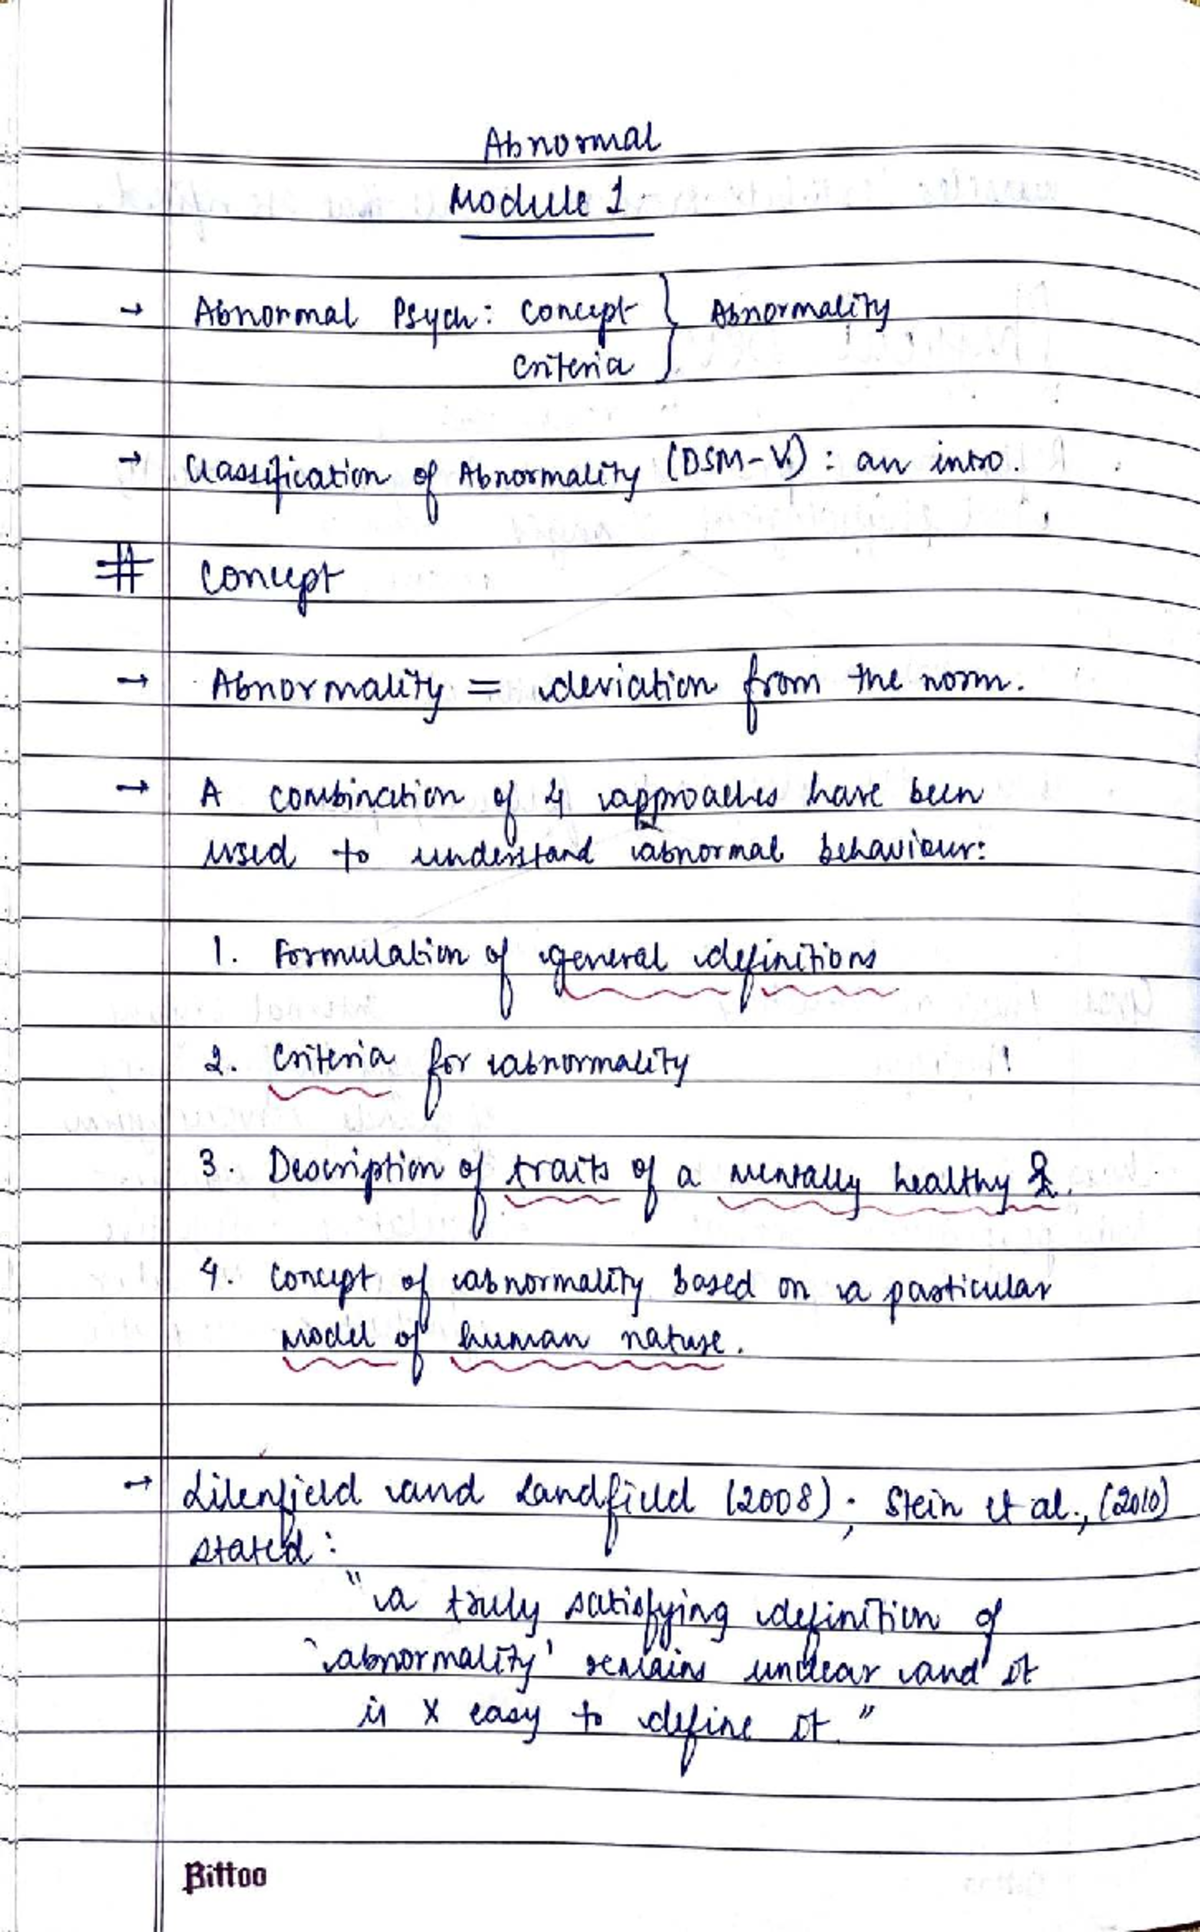 Abnormal
Module 1
→ Abnormal Psych: Concept } Abnormality
Criteria
→ Classification of Abnormality (DSM-V): an intro.
# Concept
→ Abnormality = deviation from the norm.
→ A combination of 4 approaches have been
used to understand abnormal behaviour:
1. Formulation of general definitions
2. Criteria for abnormality
3. Description of traits of a mentally healthy
4. Concept of abnormality based on a particular
model of human nature.
→ Lilenfield and Landfield (2008); Stein et al., (2010)
stated:
"a truly satisfying definition of
'abnormality' remains unclear and it
is X easy to define it."
Bittoo